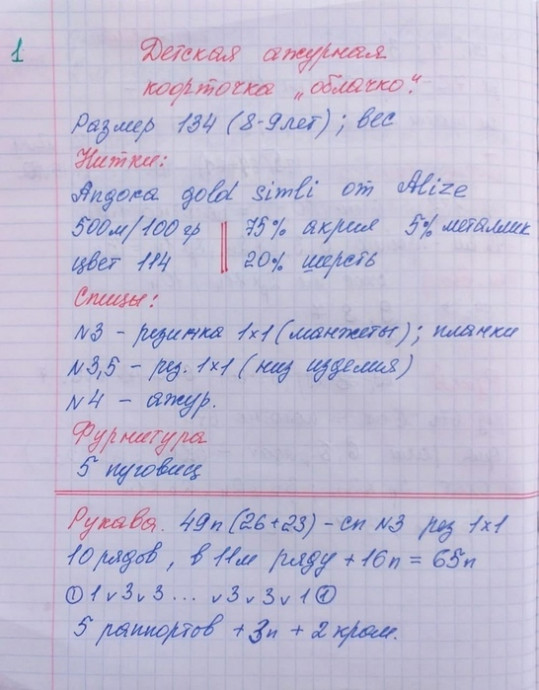 1
Детская ажурная
кофточка „облачко".
Размер 134 (8-9 лет); вес
Нитки:
Ангора gold simli от Alize
500м/100 гр 75% акрил 5% металлик
цвет 114 20% шерсть
Спицы:
N3 - резинка 1×1 (манжеты); планки
N3,5 - рез. 1×1 (низ изделия)
N4 - ажур.
Фурнитура
5 пуговиц
Рукава. 49п (26+23) - сп N3 рез 1×1
10 рядов, в 11м ряду +16п = 65п
① 1 v 3 v 3 ... v 3 v 3 v 1 ①
5 раппортов + 3п + 2 кром.